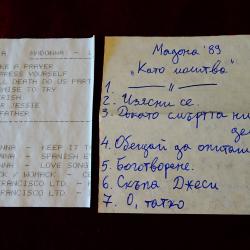 A MADONNA - L
KE A PRAYER
PRESS YOURSELF
LL DEATH DO US PART
OMISE TO TRY
ERISH
R JESSIE
FATHER
NNA - KEEP IT T
NNA - SPANISH EY
NNA - LOVE SONG
K / WOMACK - CE
FRANCISCO LTD. - F
FRANCISCO LTD -
Мадона '89
„Като молитва"
1. —— " ——
2. Изясни се.
3. Докато смъртта ни
4. Обещай да опиташ
5. Боготворене.
6. Скъпа Джеси
7. О, татко